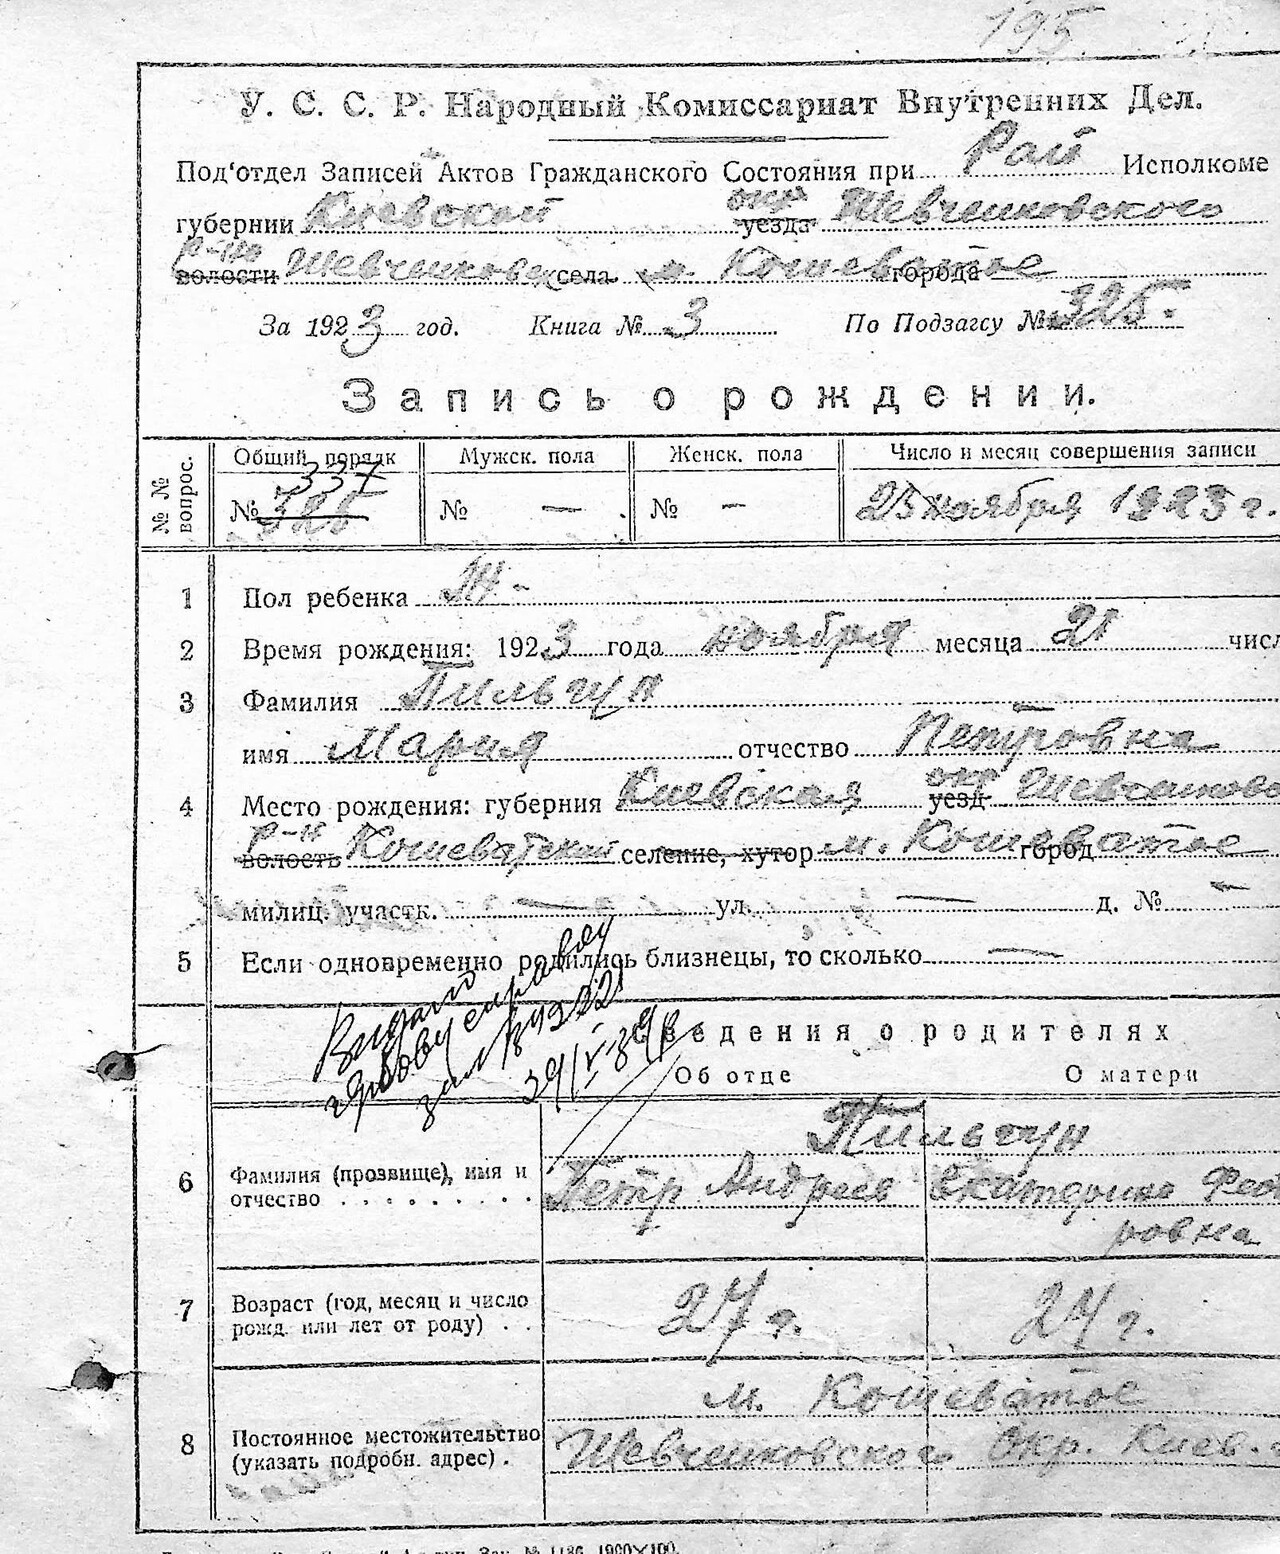 195.
У. С. С. Р. Народный Комиссариат Внутренних Дел.
Под'отдел Записей Актов Гражданского Состояния при Рай Исполкоме
губернии Киевской уезда окр Шевченковского
волости р-на Шевченковск села м. Кошеватое города
За 1923 год. Книга № 3 По Подзагсу № 325.
Запись о рождении.
№ № вопрос. Общий порядк Мужск. пола Женск. пола Число и месяц совершения записи
337
№ 325 № — № — 25 ноября 1923 г.
1 Пол ребенка Ж-
2 Время рождения: 1923 года ноября месяца 21 числ
3 Фамилия Пильгун
имя Мария отчество Петровна
4 Место рождения: губерния Киевская уезд окр Шевченково
волость р-н Кошеватский селение, хутор м. Кошеватое город
милиц. участк. — ул — д. № —
5 Если одновременно родились близнецы, то сколько —
Видано
справку
Сведения о родителях
Об отце О матери
Пильгун
6 Фамилия (прозвище), имя и отчество Петр Андреев Екатерина Фео
ровна
7 Возраст (год, месяц и число рожд. или лет от роду) 27 г. 24 г.
м. Кошеватое
8 Постоянное местожительство (указать подробн. адрес). Шевченковского Окр. Киев.
Зак. № 1186. 1900×100.